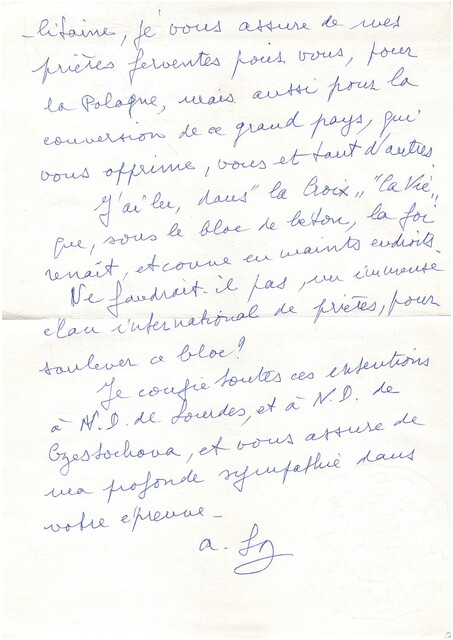 -litaine, je vous assure de mes
prières ferventes pour vous, pour
la Pologne, mais aussi pour la
conversion de ce grand pays, qui
vous opprime, vous et tant d'autres.
J'ai lu, dans "la Croix", "la Vie",
que, sous le bloc de béton, la foi
renaît, et couve en maints endroits.
Ne faudrait-il pas, un immense
élan international de prières, pour
soulever ce bloc?
Je confie toutes ces intentions
à N.D. de Lourdes, et à N.D. de
Czestochova, et vous assure de
ma profonde sympathie dans
votre épreuve -
a.